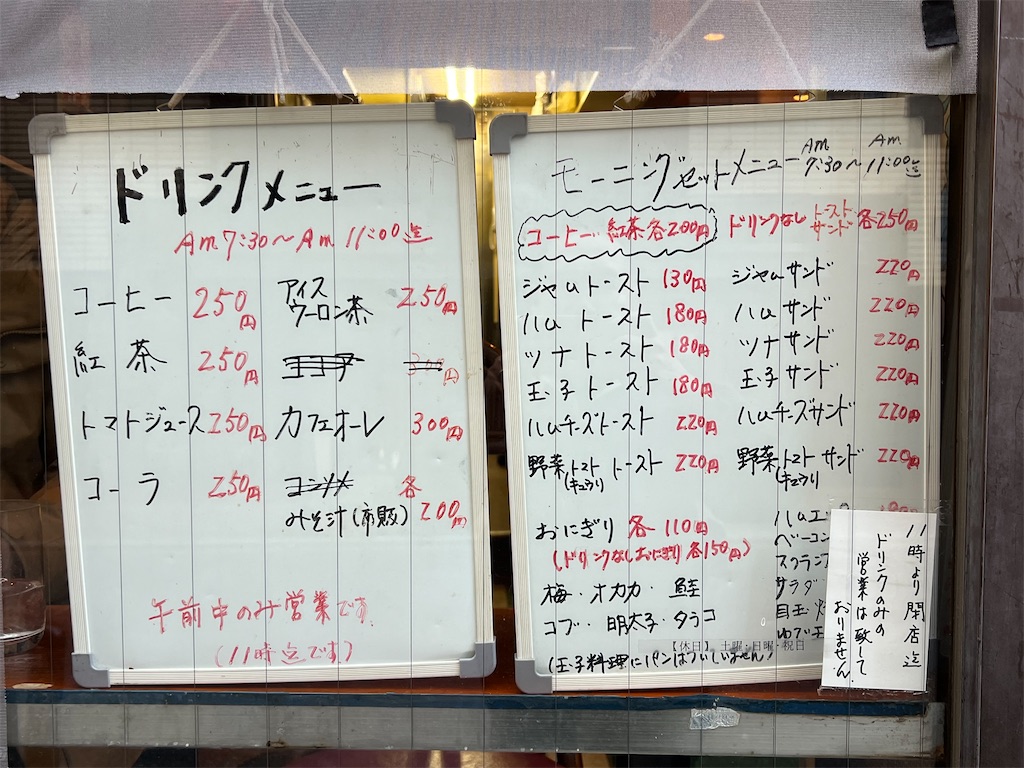 ドリンクメニュー
Am 7:30～Am 11:00迄
コーヒー 250円
紅茶 250円
トマトジュース 250円
コーラ 250円
アイスウーロン茶 250円
ココア 300円
カフェオーレ 300円
コンソメ 各
みそ汁(市販) 200円
午前中のみ営業です
(11時迄です)
モーニングセットメニュー Am 7:30～Am 11:00迄
コーヒー・紅茶各200円
ドリンクなし トースト サンド 各250円
ジャムトースト 130円
ハムトースト 180円
ツナトースト 180円
玉子トースト 180円
ハムチーズトースト 220円
野菜(トマト キュウリ)トースト 220円
ジャムサンド 220円
ハムサンド 220円
ツナサンド 220円
玉子サンド 220円
ハムチーズサンド 220円
野菜(トマト キュウリ)サンド 220円
おにぎり 各110円
(ドリンクなしおにぎり各150円)
梅・オカカ・鮭
コブ・明太子・タラコ
ハムエ
ベーコン
スクランブ
サラダ
目玉・
ゆで玉
(玉子料理にパンはついていません)
【休日】 土曜・日曜・祝日
11時より閉店迄
ドリンクのみの
営業は致して
おりません